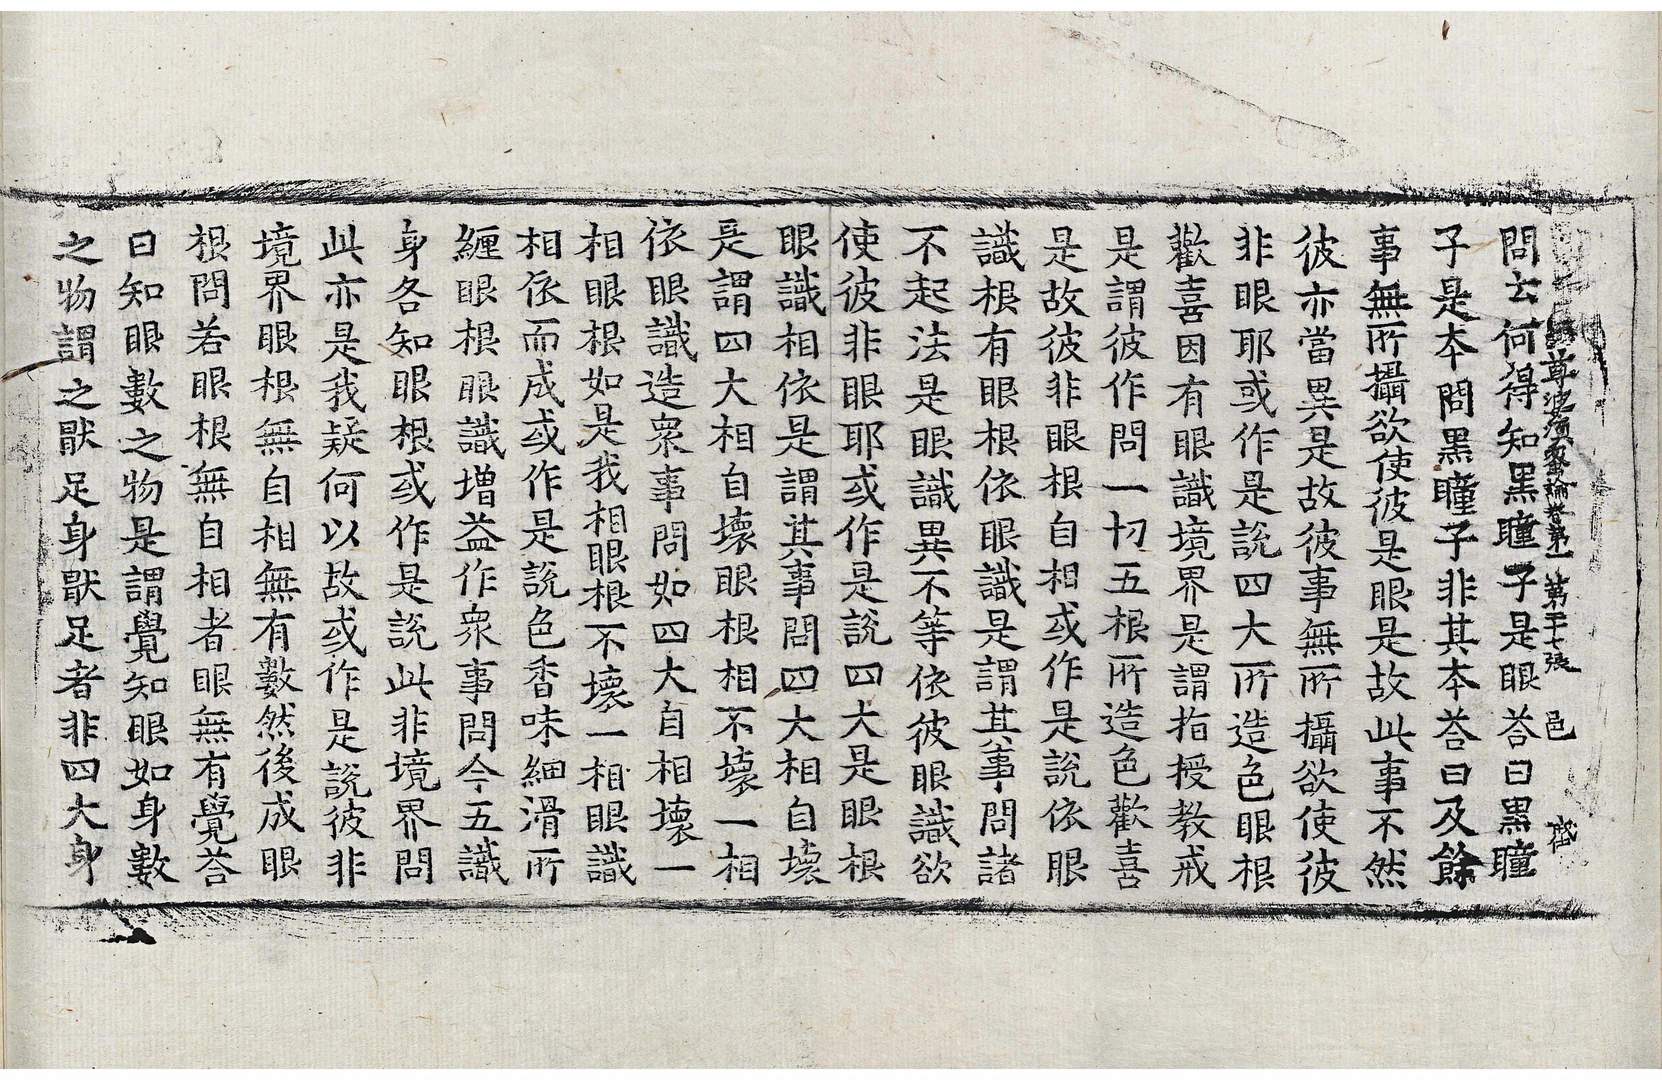 尊婆須蜜論卷第一 第三十七張 邑
問云何得知黑瞳子是眼荅曰黑瞳
子是本問黑瞳子非其本荅曰及餘
事無所攝欲使彼是眼是故此事不然
彼亦當異是故彼事無所攝欲使彼
非眼耶或作是說四大所造色眼根
歡喜因有眼識境界是謂指授教戒
是謂彼作問一切五根所造色歡喜
是故彼非眼根自相或作是說依眼
識根有眼根依眼識是謂其事問諸
不起法是眼識異不等依彼眼識欲
使彼非眼耶或作是說四大是眼根
眼識相依是謂其事問四大相自壞
是謂四大相自壞眼根相不壞一相
依眼識造衆事問如四大自相壞一
相眼根如是我相眼根不壞一相眼識
相依而成或作是說色香味細滑所
纏眼根眼識增益作衆事問今五識
身各知眼根或作是說此非境界問
此亦是我疑何以故或作是說彼非
境界眼根無自相無有數然後成眼
根問若眼根無自相者眼無有覺荅
曰知眼數之物是謂覺知眼如身數
之物謂之猒足身猒足者非四大身